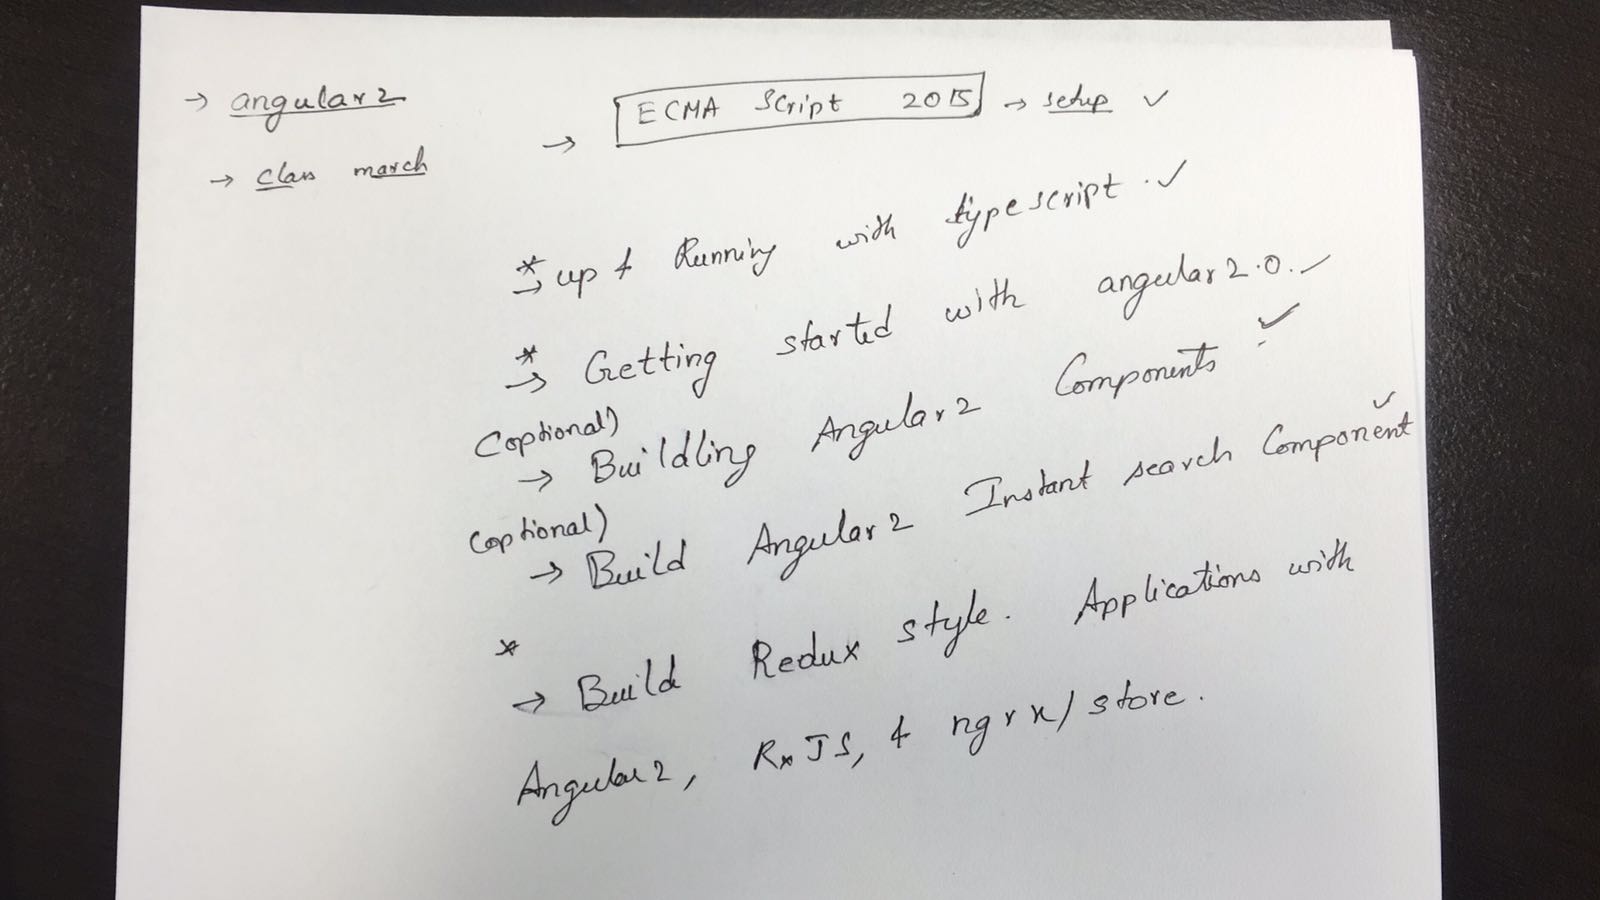 → angular2
→ class march
→ ECMA Script 2015 → setup ✓
* → up & Running with typescript. ✓
* → Getting started with angular2.0. ✓
(optional)
→ Buildling Angular2 Components ✓
(optional)
→ Build Angular2 Instant search Component ✓
*
→ Build Redux style. Applications with
Angular2, RxJS, & ngrx/store.